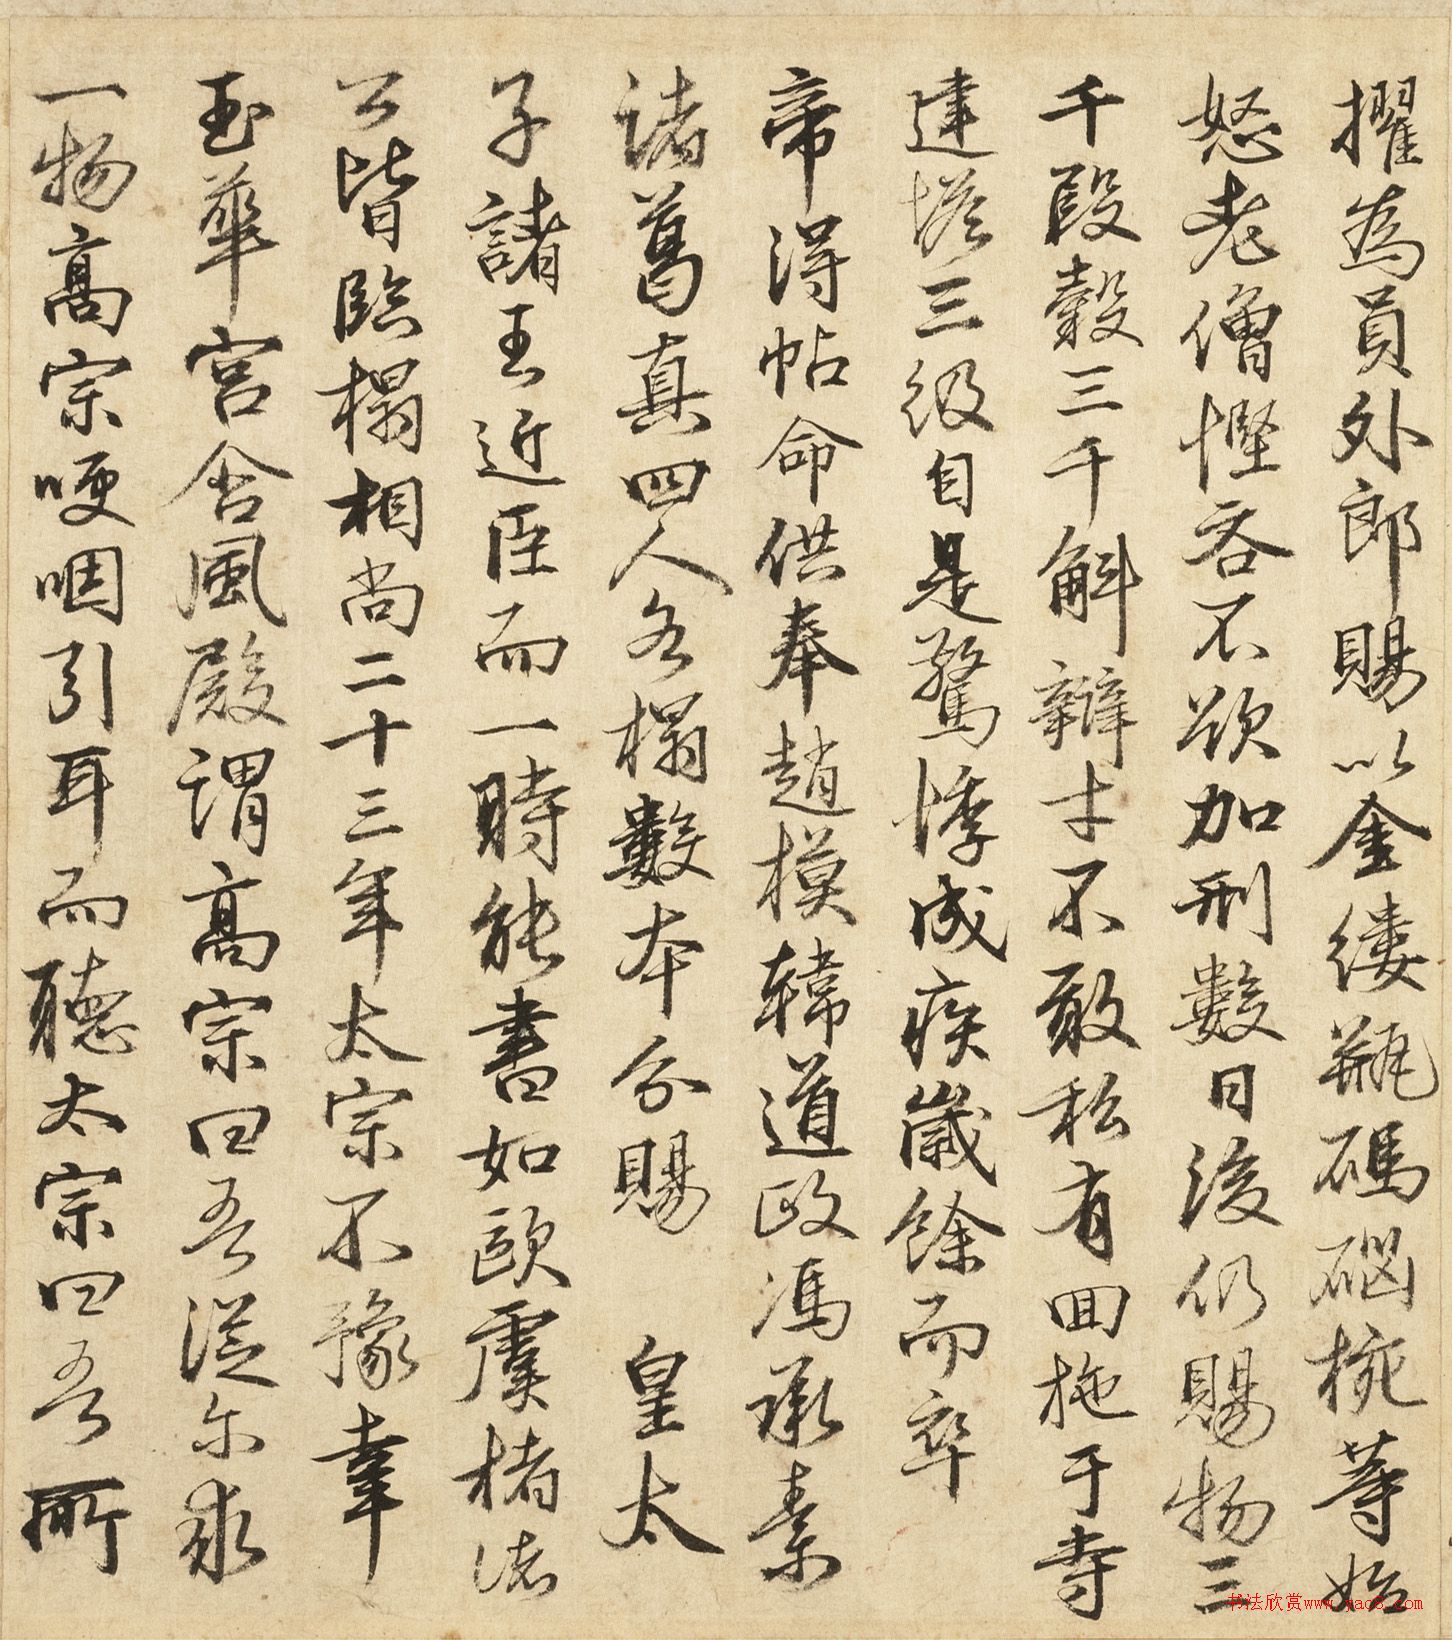 擢為員外郎賜以金縷瓶碼碯椀等始
怒老僧慳吝不欲加刑數日後仍賜物三
千段穀三千斛辯才不敢私有囬施于寺
建塔三級自是驚悸成疾歲餘而卒
帝得帖命供奉趙模韓道政馮承素
諸葛真四人各榻數本分賜 皇太
子諸王近臣而一時能書如歐虞楮諸
公皆臨榻相尚二十三年太宗不豫幸
玉華宮含風殿謂高宗曰吾從尔求
一物高宗哽咽引耳而聽太宗曰吾所
书法欣赏www.yac8.com